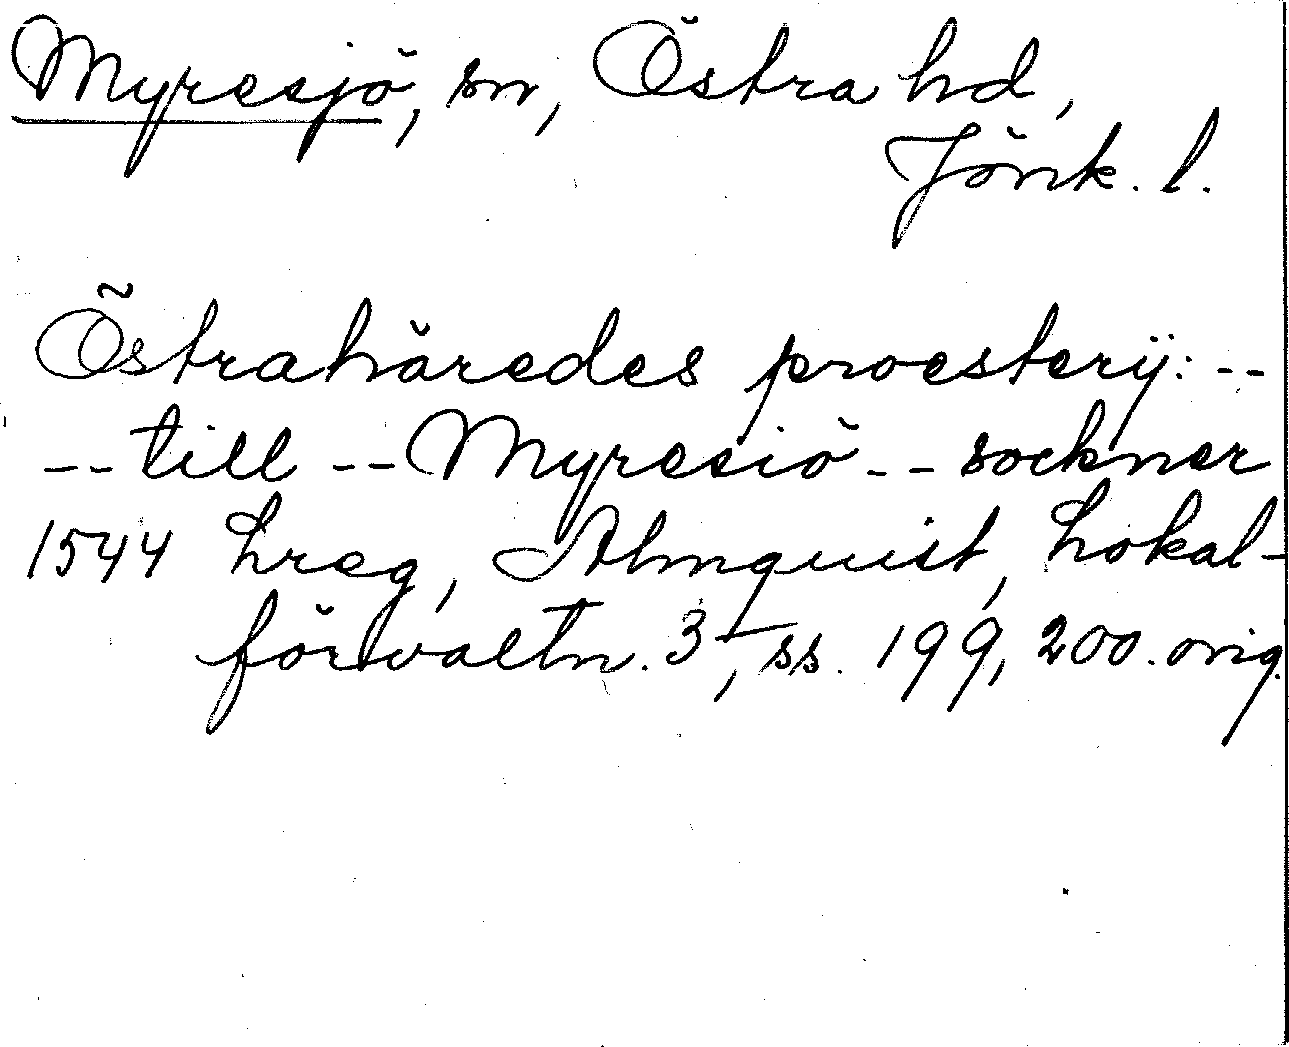 Myresjö, sn, Östra hd,
Jönk. l.
Östrahäredes proesterÿ: --
-- till -- Myresiö -- sockner
1544 Lreg, Almquist, Lokal-
förvaltn. 3, ss. 199, 200. orig.